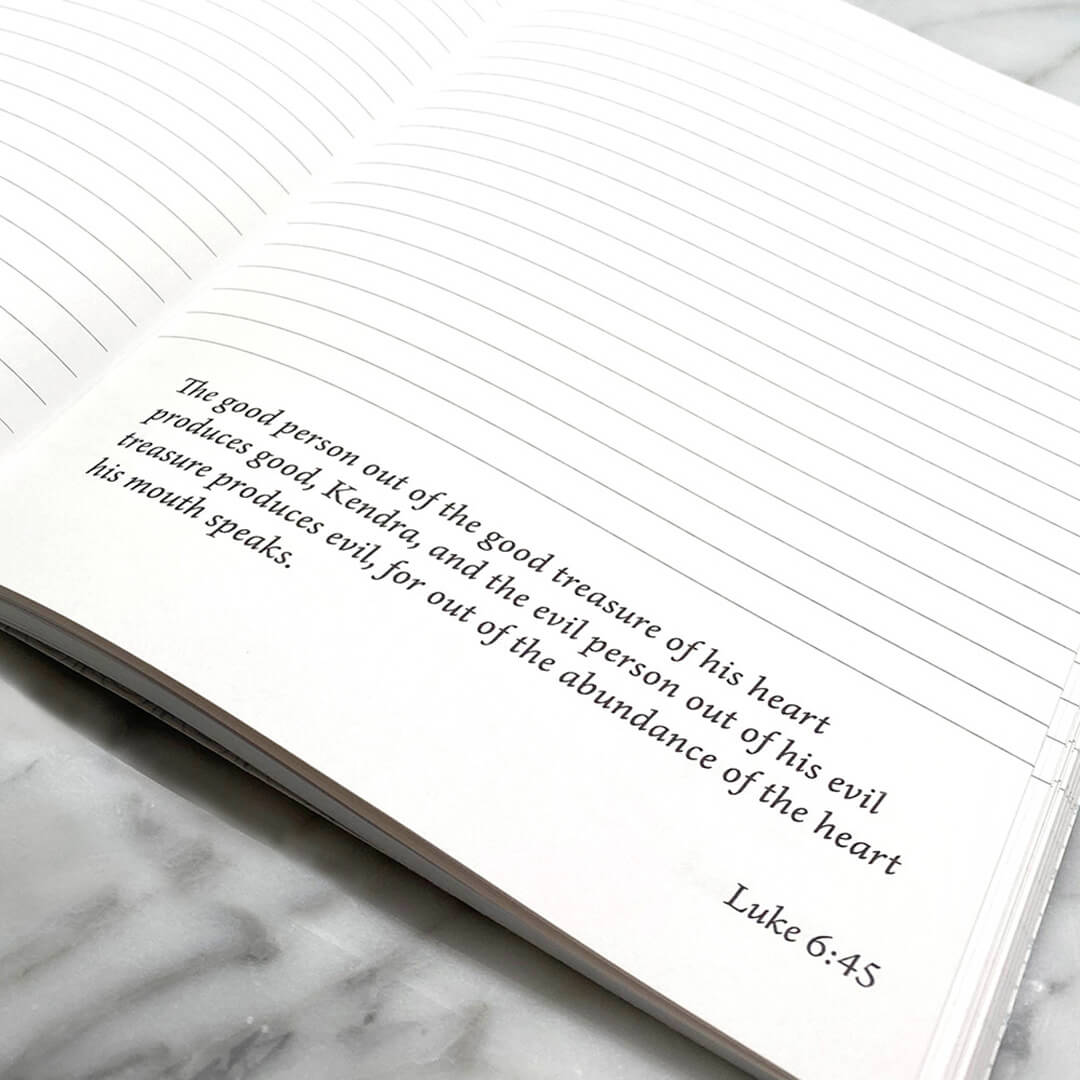 The good person out of the good treasure of his heart
produces good, Kendra, and the evil person out of his evil
treasure produces evil, for out of the abundance of the heart
his mouth speaks.
Luke 6:45